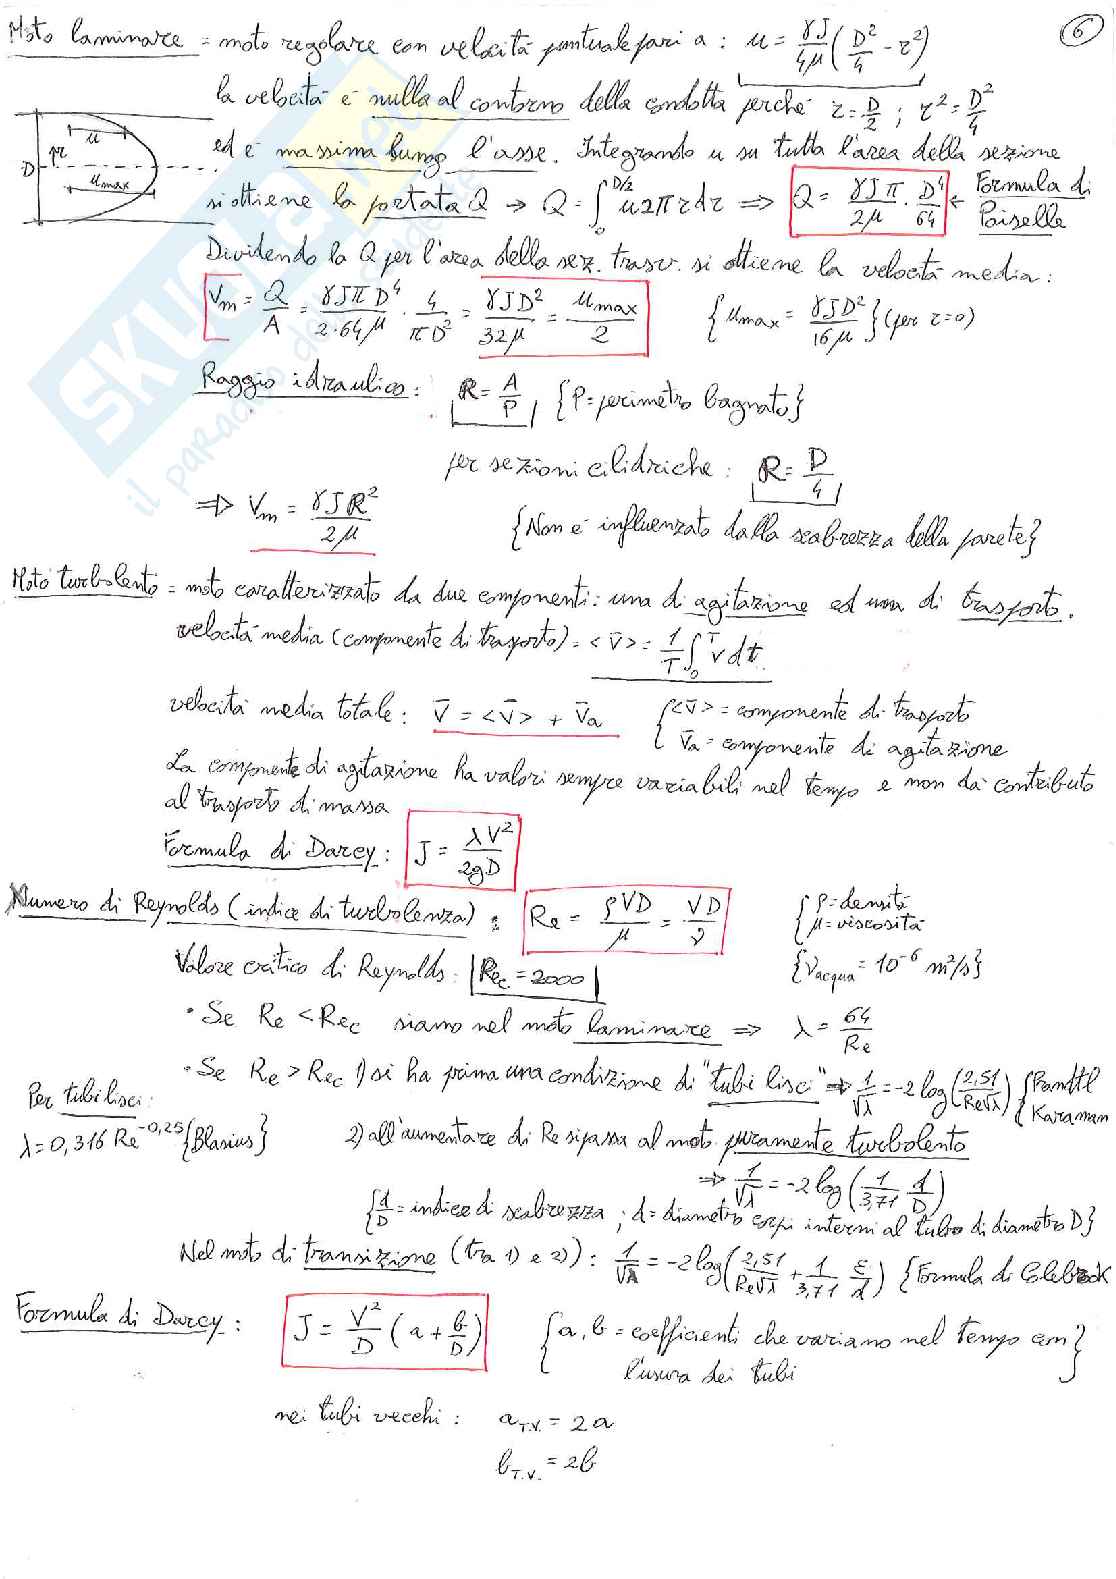 6
Moto laminare = moto regolare con velocità puntuale pari a : u = γJ/4μ (D²/4 - r²)
la velocità è nulla al contorno della condotta perché r = D/2 ; r² = D²/4
ed è massima lungo l'asse. Integrando u su tutta l'area della sezione
si ottiene la portata Q → Q = ∫₀^{D/2} u2πrdr ⇒ Q = γJπ/2μ · D⁴/64 ← Formula di Poiselle
D r u umax
Dividendo la Q per l'area della sez. trasv. si ottiene la velocità media :
Vm = Q/A = γJπD⁴/2·64μ · 4/πD² = γJD²/32μ = umax/2 {umax = γJD²/16μ} (per r=0)
Raggio idraulico : R = A/P {P = perimetro bagnato}
per sezioni cilidriche : R = D/4
⇒ Vm = γJR²/2μ {Non è influenzato dalla scabrezza della parete}
Moto turbolento = moto caratterizzato da due componenti : una di agitazione ed una di trasporto.
velocità media (componente di trasporto) = <v̄> = 1/T ∫₀^T v̄ dt
velocità media totale : v̄ = <v̄> + v̄a {<v̄> = componente di trasporto
v̄a = componente di agitazione
La componente di agitazione ha valori sempre variabili nel tempo e non dà contributo
al trasporto di massa
Formula di Darcy : J = λV²/2gD
Numero di Reynolds (indice di turbolenza) : Re = ρVD/μ = VD/ν {ρ = densità
μ = viscosità
Valore critico di Reynolds : Rec = 2000 {νacqua = 10⁻⁶ m²/s}
• Se Re < Rec siamo nel moto laminare ⇒ λ = 64/Re
• Se Re > Rec 1) si ha prima una condizione di "tubi lisci" ⇒ 1/√λ = -2log(2,51/Re√λ) {Prandtl
Karaman
Per tubi lisci :
λ = 0,316 Re^-0,25 {Blasius}
2) all'aumentare di Re si passa al moto puramente turbolento
⇒ 1/√λ = -2log(1/3,71 d/D)
{d/D = indice di scabrezza ; d = diametro corpi interni al tubo di diametro D}
Nel moto di transizione (tra 1) e 2)) : 1/√λ = -2log(2,51/Re√λ + 1/3,71 ε/d) {Formula di Colebrook
Formula di Darcy : J = V²/D (a + b/D) {a, b = coefficienti che variano nel tempo con
l'usura dei tubi}
nei tubi vecchi : aT.V. = 2a
bT.V. = 2b
SKUOLA.net
il paradiso dello studente